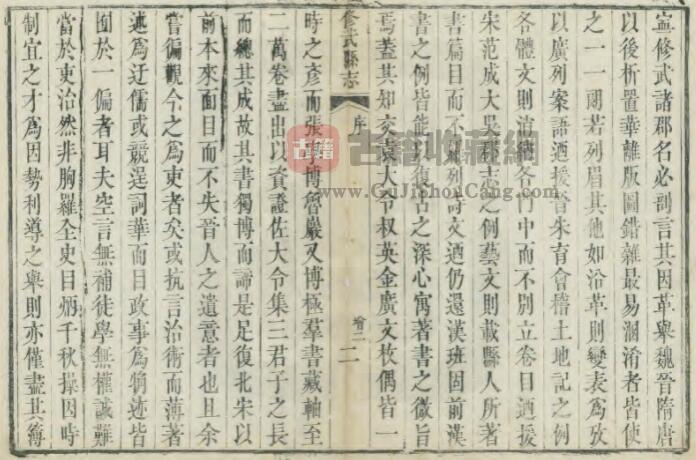 寍修武諸郡名必剖言其因革舉魏晉隋唐
以後析置華離版圖錯雜最易溷淆者皆使
之一一爾若列眉其他如沿革則變表為攷
以廣列案語迺援晉朱育會稽土地記之例
各體文則治德各門中而不別立卷目迺援
宋范成大吳郡志之例藝文則載縣人所著
書篇目而不羅列詩文迺仍還漢班固前漢
書之例皆能以復古之深心寓著書之微旨
焉蓋其知交袁大令叔英金廣文枚偶皆一
修武縣志
序
卷二
二
時之彥而張博魯巖又博極羣書藏軸至
二萬卷盡出以資證佐大令集三君子之長
而總其成故其書獨博而諦是足復北宋以
前本來面目而不失晉人之遺意者也且余
嘗徧觀今之為吏者矣或抗言治術而薄著
述為迂儒或競逞詞華而目政事為觕迹皆
囿於一偏者耳夫空言無補徒學無權誠難
當於吏治然非胸羅全史目炳千秋操因時
制宜之才為因勢利導之舉則亦僅盡其簿
古籍
古籍收藏網
www.GuJiShouCang.com